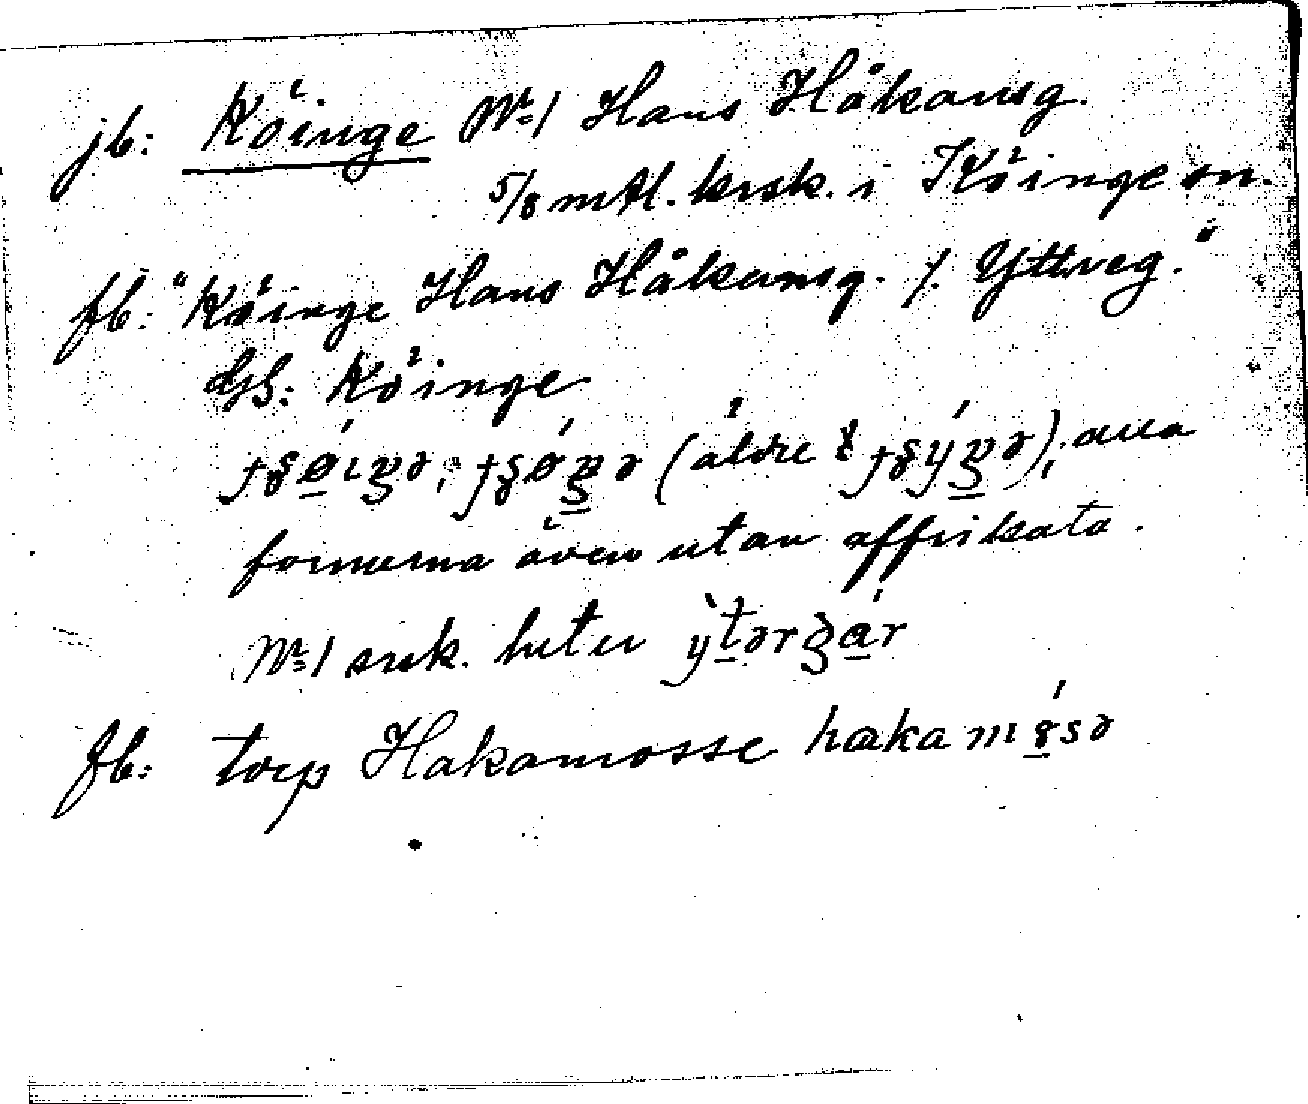 jb: Köinge Nr 1 Hans Håkansg.
5/8 mtl. krsk. i Köinge sn.
fb: "Köinge Hans Håkansg. /. Yttreg."
Köinge
(äldre alla
formerna även utan affrikata.
Nr 1 srek. heter ýtərgár
fb: torp Hakamosse hakamósə